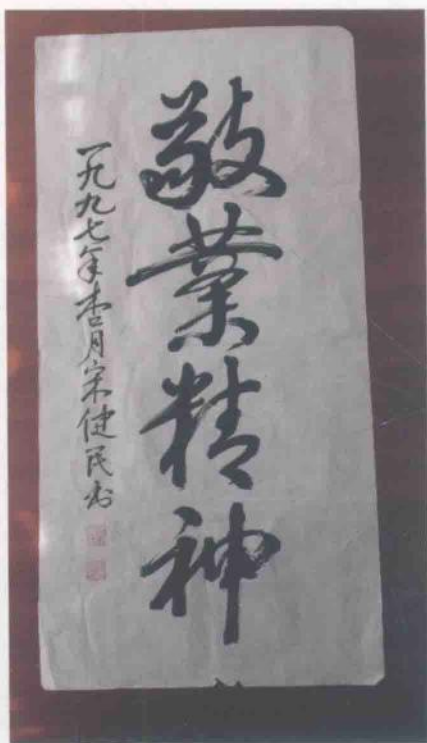 敬業精神
一九九七年杏月宋健民书